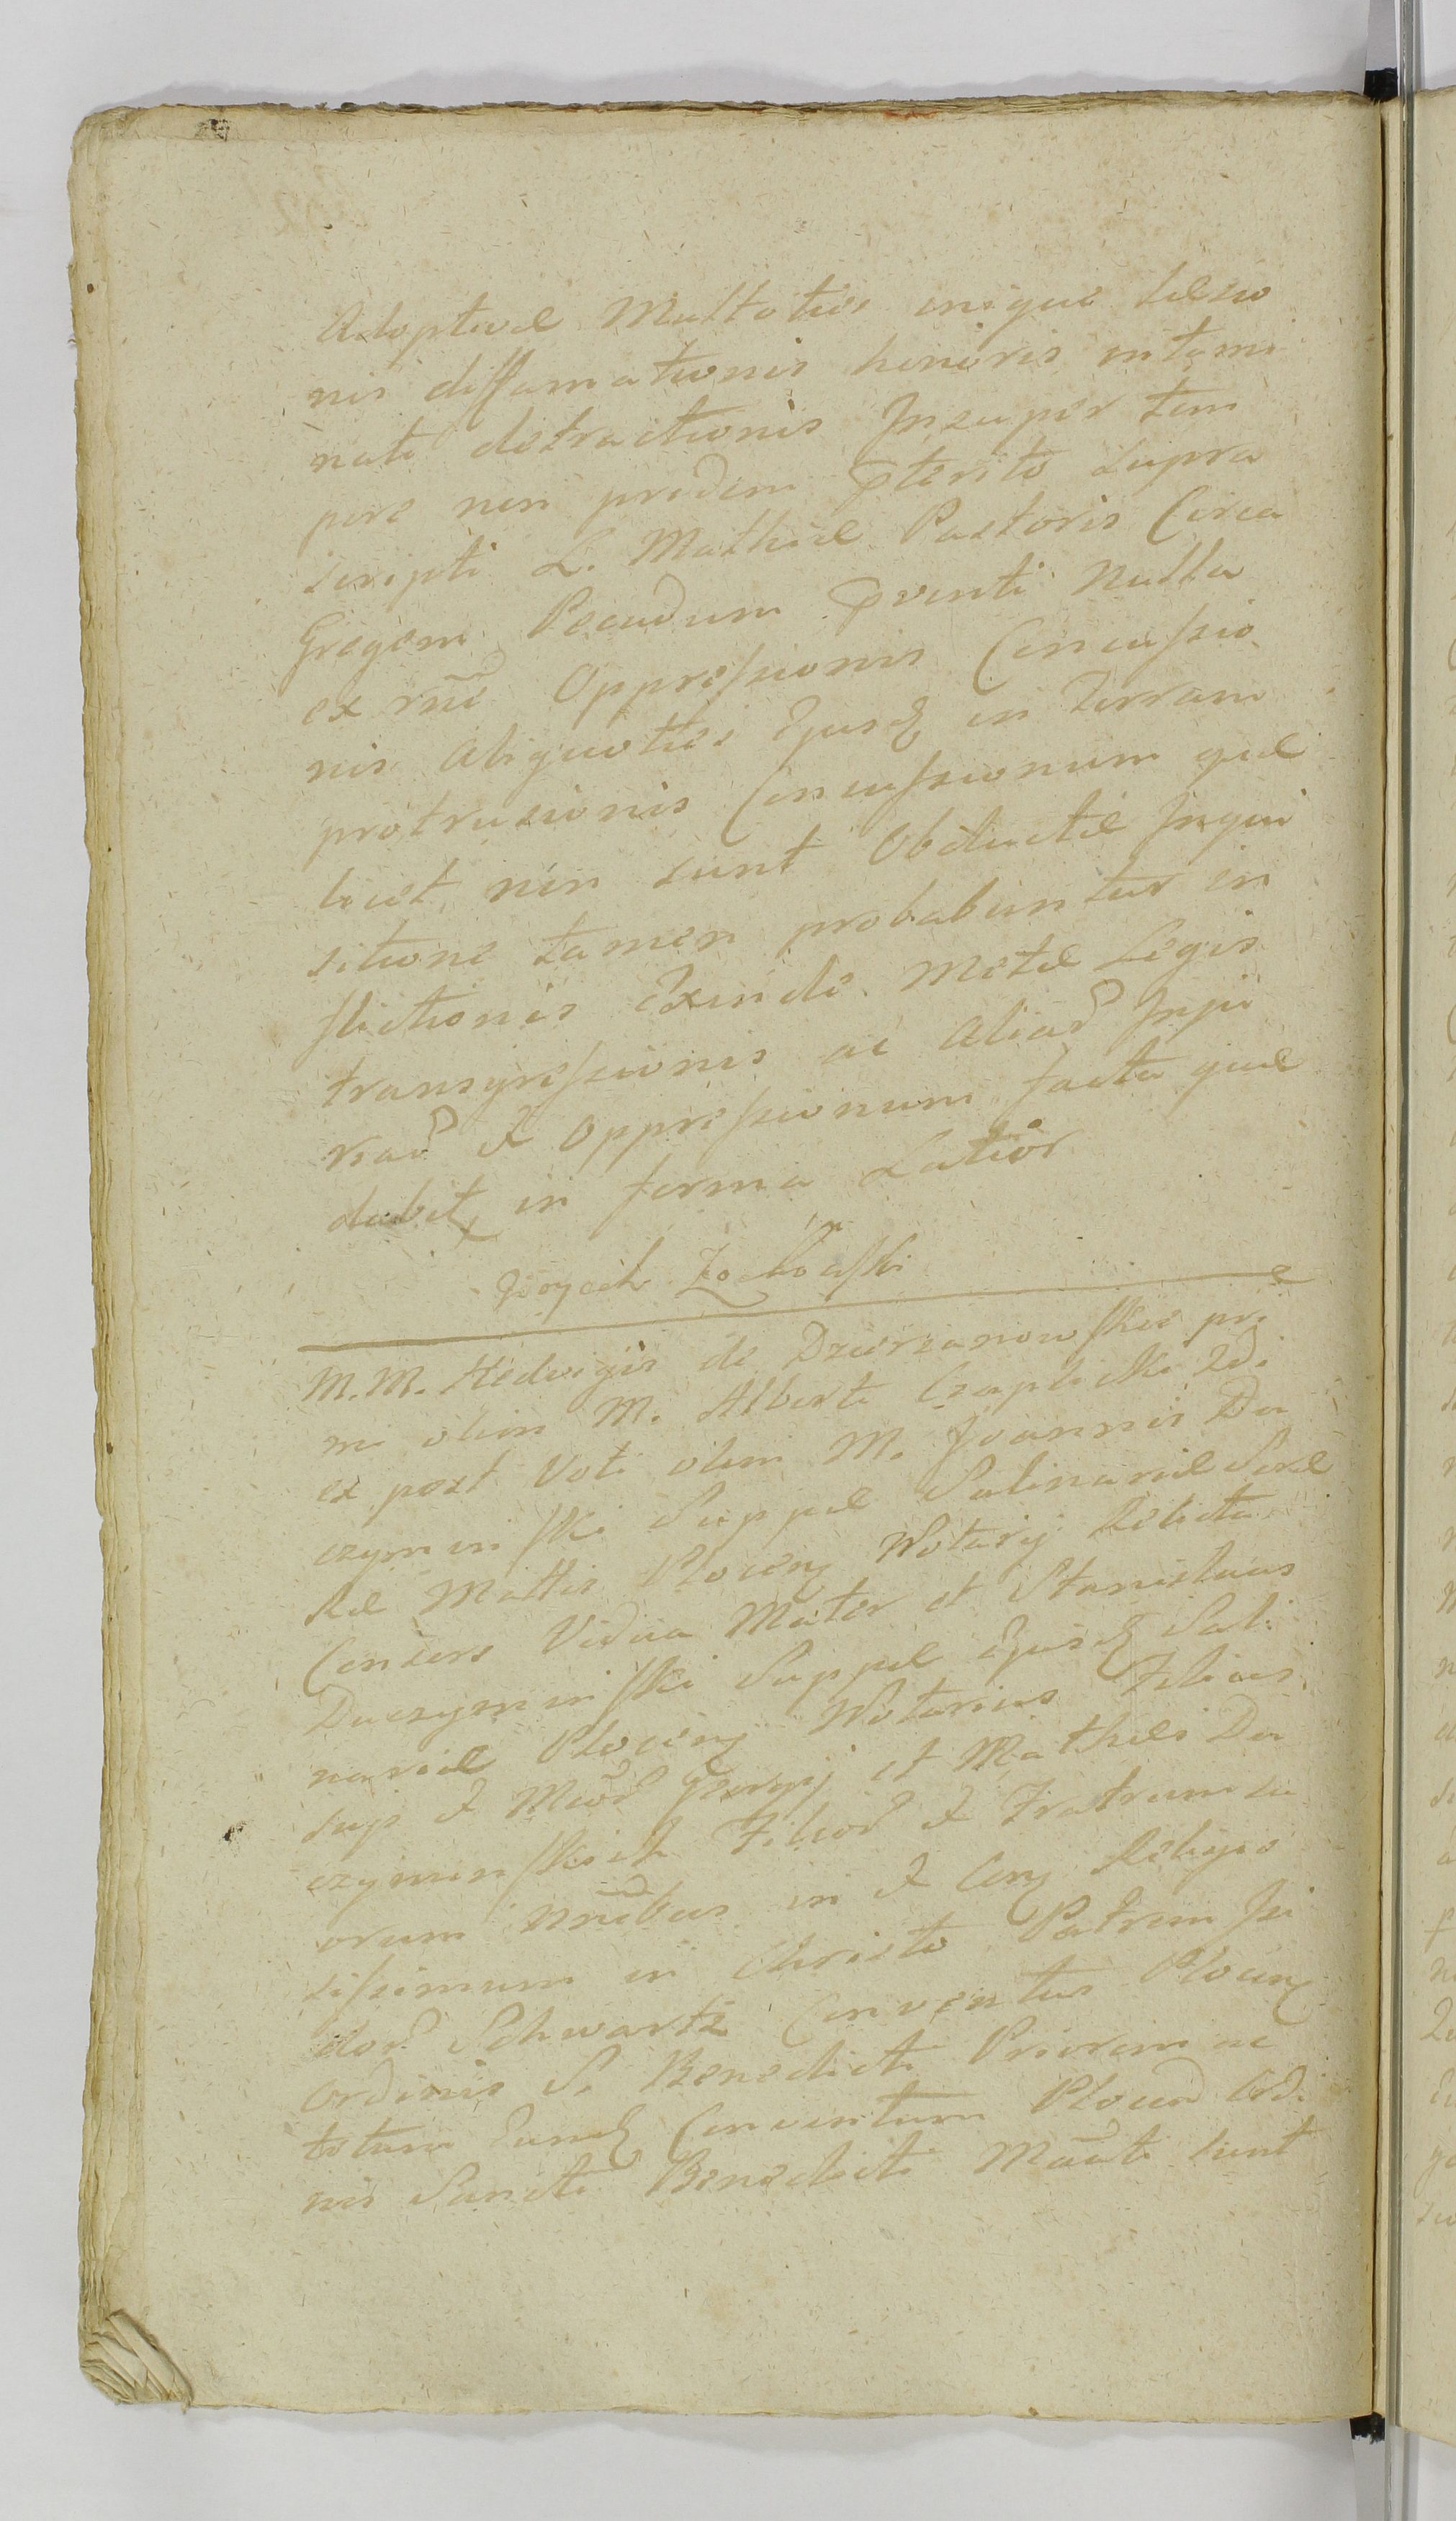 Adoptivæ Multoties inique læsio
nis diffamationis honoris intami
nati detractionis Insuper tem
pore non pridem pterito supra
scripti L. Mathiæ Pastoris Circa
Gregem Pecudum pventi Nulla
ex rne Oppressionis Concussio
nis aliquoties Ejusd in Terram
protrusionis Concussionum quæ
licet non sunt Obductæ Inqui
sitione tamen probabuntur in
flictionis Exinde Metæ Legis
transgressionis ac aliar Inju
riar & Oppressionum facta quæ
dabit in forma Latior
Woyciech
M. M. Hedvigis de Dzierzanowskie pri
mi olim M. Alberti Czaplicki 2di
ex post Voti olim M. Joannis Du
czyminski Suppæ Salinariæ Sæ
Ræ Mattis Plocen Notarij Relicta
Consors Vidua Mater et Stanislaus
Duczyminski Suppæ Ejusd Sali
nariæ Plocen Notarius Filius
suo & Mcor Georgij et Mathæi Du
czyminskich Filior & Fratrum su
orum Nnibus in & Con Religio
sissimum in Christo Patrem Isi
dor Schwartz Conventus Plocen
Ordinis S. Benedicti Priorem ac
totum Eund Conventum Plocen Ordi
nis Sancti Benedicti Mandti sunt